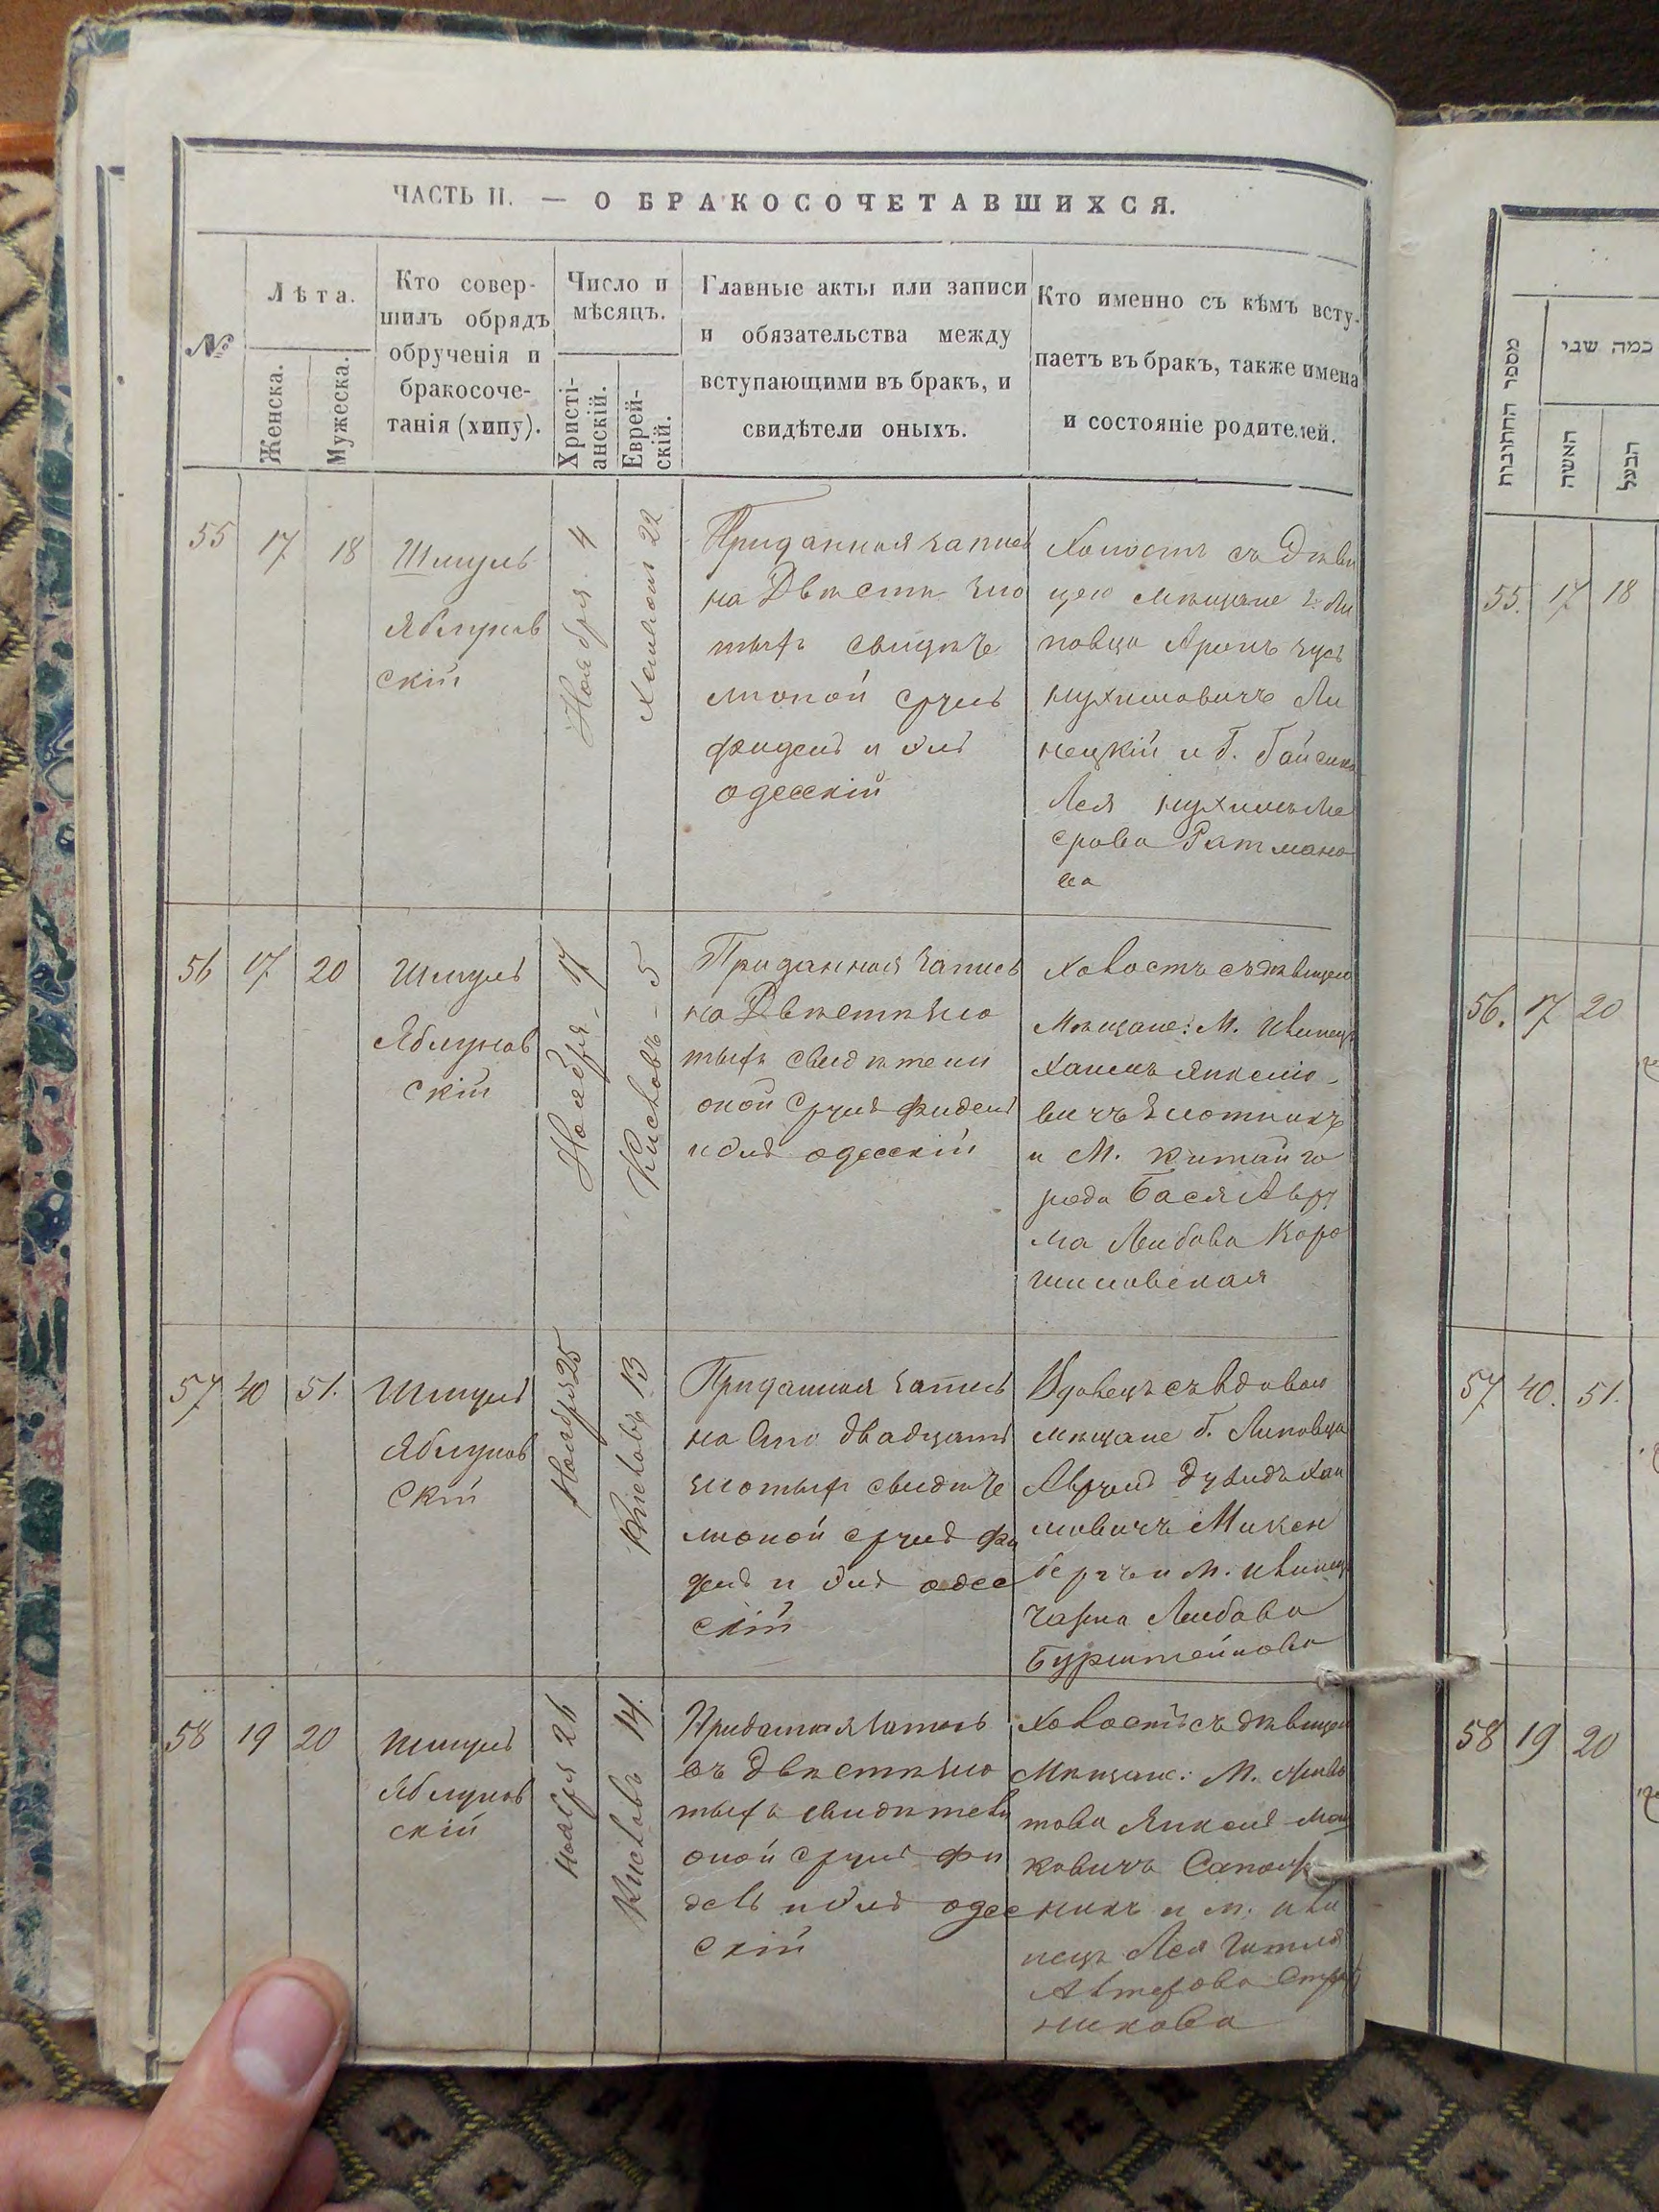 ЧАСТЬ II. — О БРАКОСОЧЕТАВШИХСЯ.
№
Лѣта.
Женска.
Мужеска.
Кто совер-
шилъ обрядъ
обрученія и
бракосоче-
танія (хипу).
Число и
мѣсяцъ.
Христі-
анскій.
Еврей-
скій.
Главные акты или записи
и обязательства между
вступающими въ бракъ, и
свидѣтели оныхъ.
Кто именно съ кѣмъ всту-
паетъ въ бракъ, также имена
и состояніе родителей.
55
17
18
Шмуль
Яблунов
скій
Ноября 4
22
Приданная запись
на Двѣсти зло
тыхъ свидѣте
ли оной Сруль
Фидель и
одесскій
Холостъ съ Дѣви
цею мѣщане г. Ли
повца Аронъ Зусь
Нухимовичъ Ли
нецкій и г. Гайсина
Лея Нухимъ Ме
ерова Ратмано
ва
56
17
20
Шмуль
Яблунов
скій
Ноября 17
Кислевъ 5
Приданная запись
на Двѣсти зло
тыхъ свидѣтели
оной Сруль Фидель
и одесскій
Холостъ съ дѣвицею
Мѣщане: М. Ивинецъ
Хаимъ Янкелю-
вичъ Злотникъ
и М. Китайго
рода Бася Авру
ма Лейбова Коро
шиловская
57
40
51.
Шмуль
Яблунов
скій
Ноября 25
Кислевъ 13
Приданная запись
на Сто двадцать
злотыхъ свидѣте
ли оной Сруль Фи
дель и одес
скій
Вдовецъ съ вдовою
мѣщане г. Липовца
Аврумъ Дувидъ Хаи
мовичъ Микен
бергъ и М. Ивинецъ
Чарна Лейбова
Бурштейнова
58
19
20
Шмуль
Яблунов
скій
Ноября 26
Кислевъ 14.
Приданная запись
въ двѣсти зло
тыхъ свидѣтели
оной Сруль Фи
дель и одес
скій
Холостъ съ дѣвицею
Мѣщане: М.
това Янкель
ковичъ
никъ и м. Иви
нецъ Лея Гитля
Алтерова
никова
מספר החתונות
כמה שני
האשה
הבעל
55.
17
18
56.
17
20
57
40.
51.
58
19
20